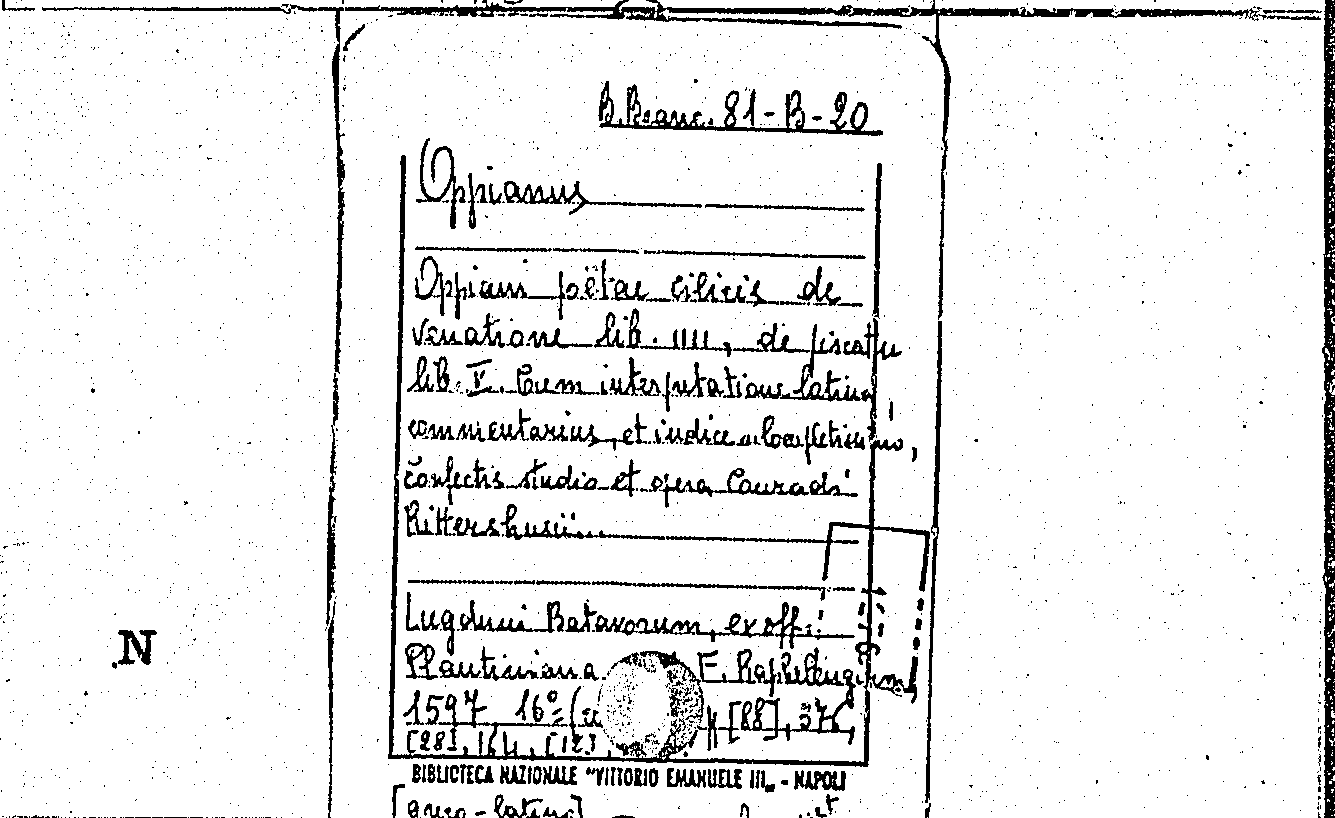 B. Branc. 81-B-20
Oppianus
Oppiani poëtae cilicis de
venatione lib. IIII, de piscatu
lib. V. Cum interpretatione latina,
commentariis, et indice
confectis studio et opera Conradi
Rittershusii...
Lugduni Batavorum, ex off.
Plantiniana F. Raphelengium
1597 16° [88], 376,
[28], 164, [12]
BIBLIOTECA NAZIONALE "VITTORIO EMANUELE III" - NAPOLI
[greco-latino]
N